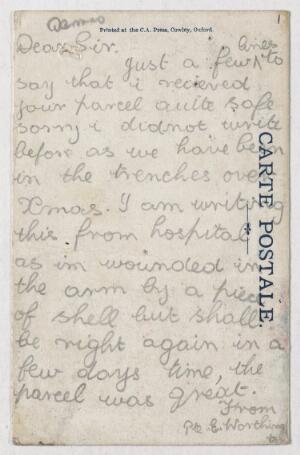 Printed at the C.A. Press, Cowley, Oxford.
1
Dear Sir.
just a few lines to
say that i recieved
your parcel quite safe
sorry i didnot write
before as we have been
in the trenches over
Xmas. I am writing
this from hospital
as im wounded in
the arm by a piece
of shell but shall
be right again in a
few days time, the
parcel was great.
From
Pte E. Worthing
CARTE POSTALE.